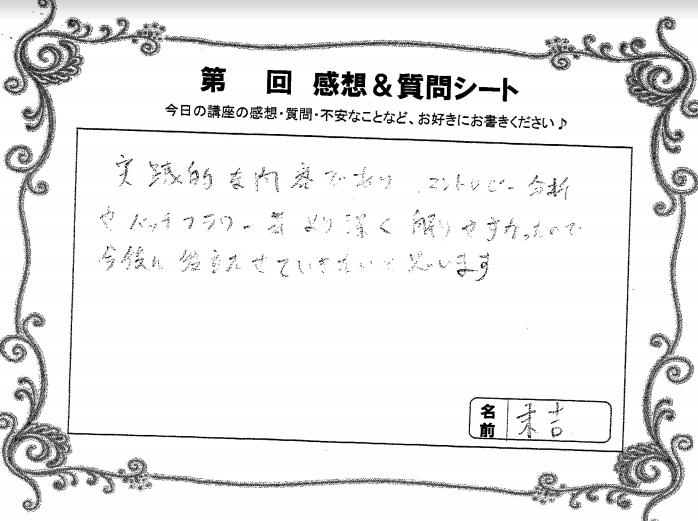 第　回 感想＆質問シート
今日の講座の感想・質問・不安なことなど、お好きにお書きください♪
実践的な内容であり、エントロピー分析
やバッチフラワー等より深く解りやすかったので
今後に役立たせていきたいと思います
名前 末吉